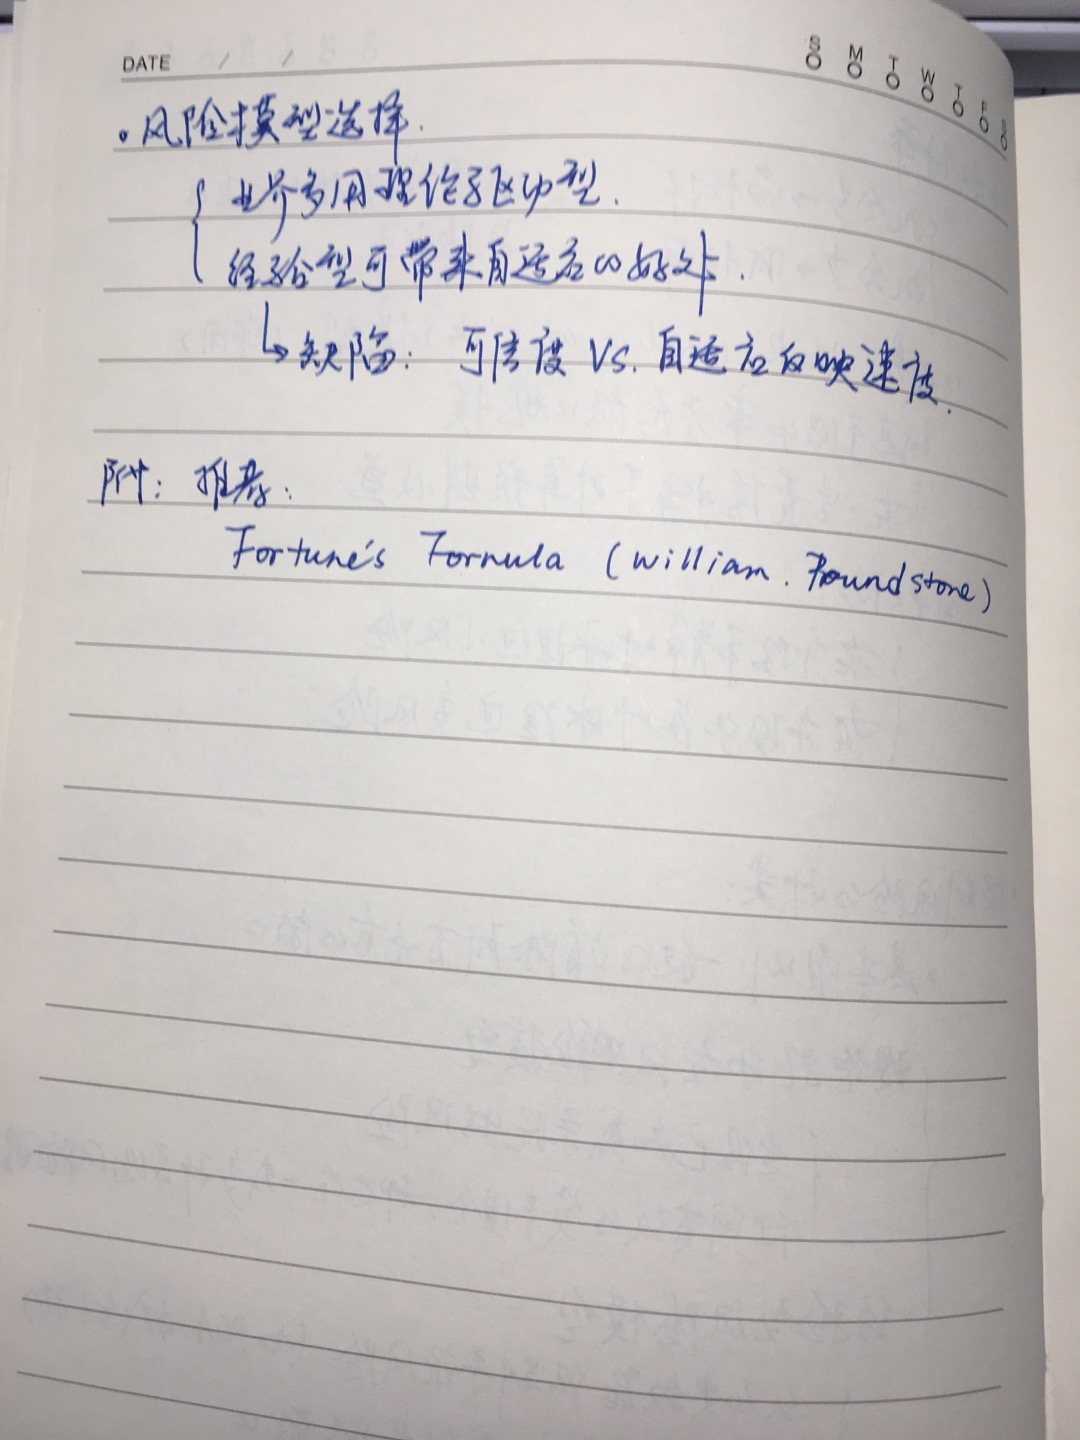 DATE / /
S M T W T F S
• 风险模型选择.
业界多用理论驱动型.
经验型可带来自适应的好处.
↳ 缺陷: 可信度 VS. 自适应反映速度.
附: 推荐:
Fortune's Fornula (William. Poundstone)